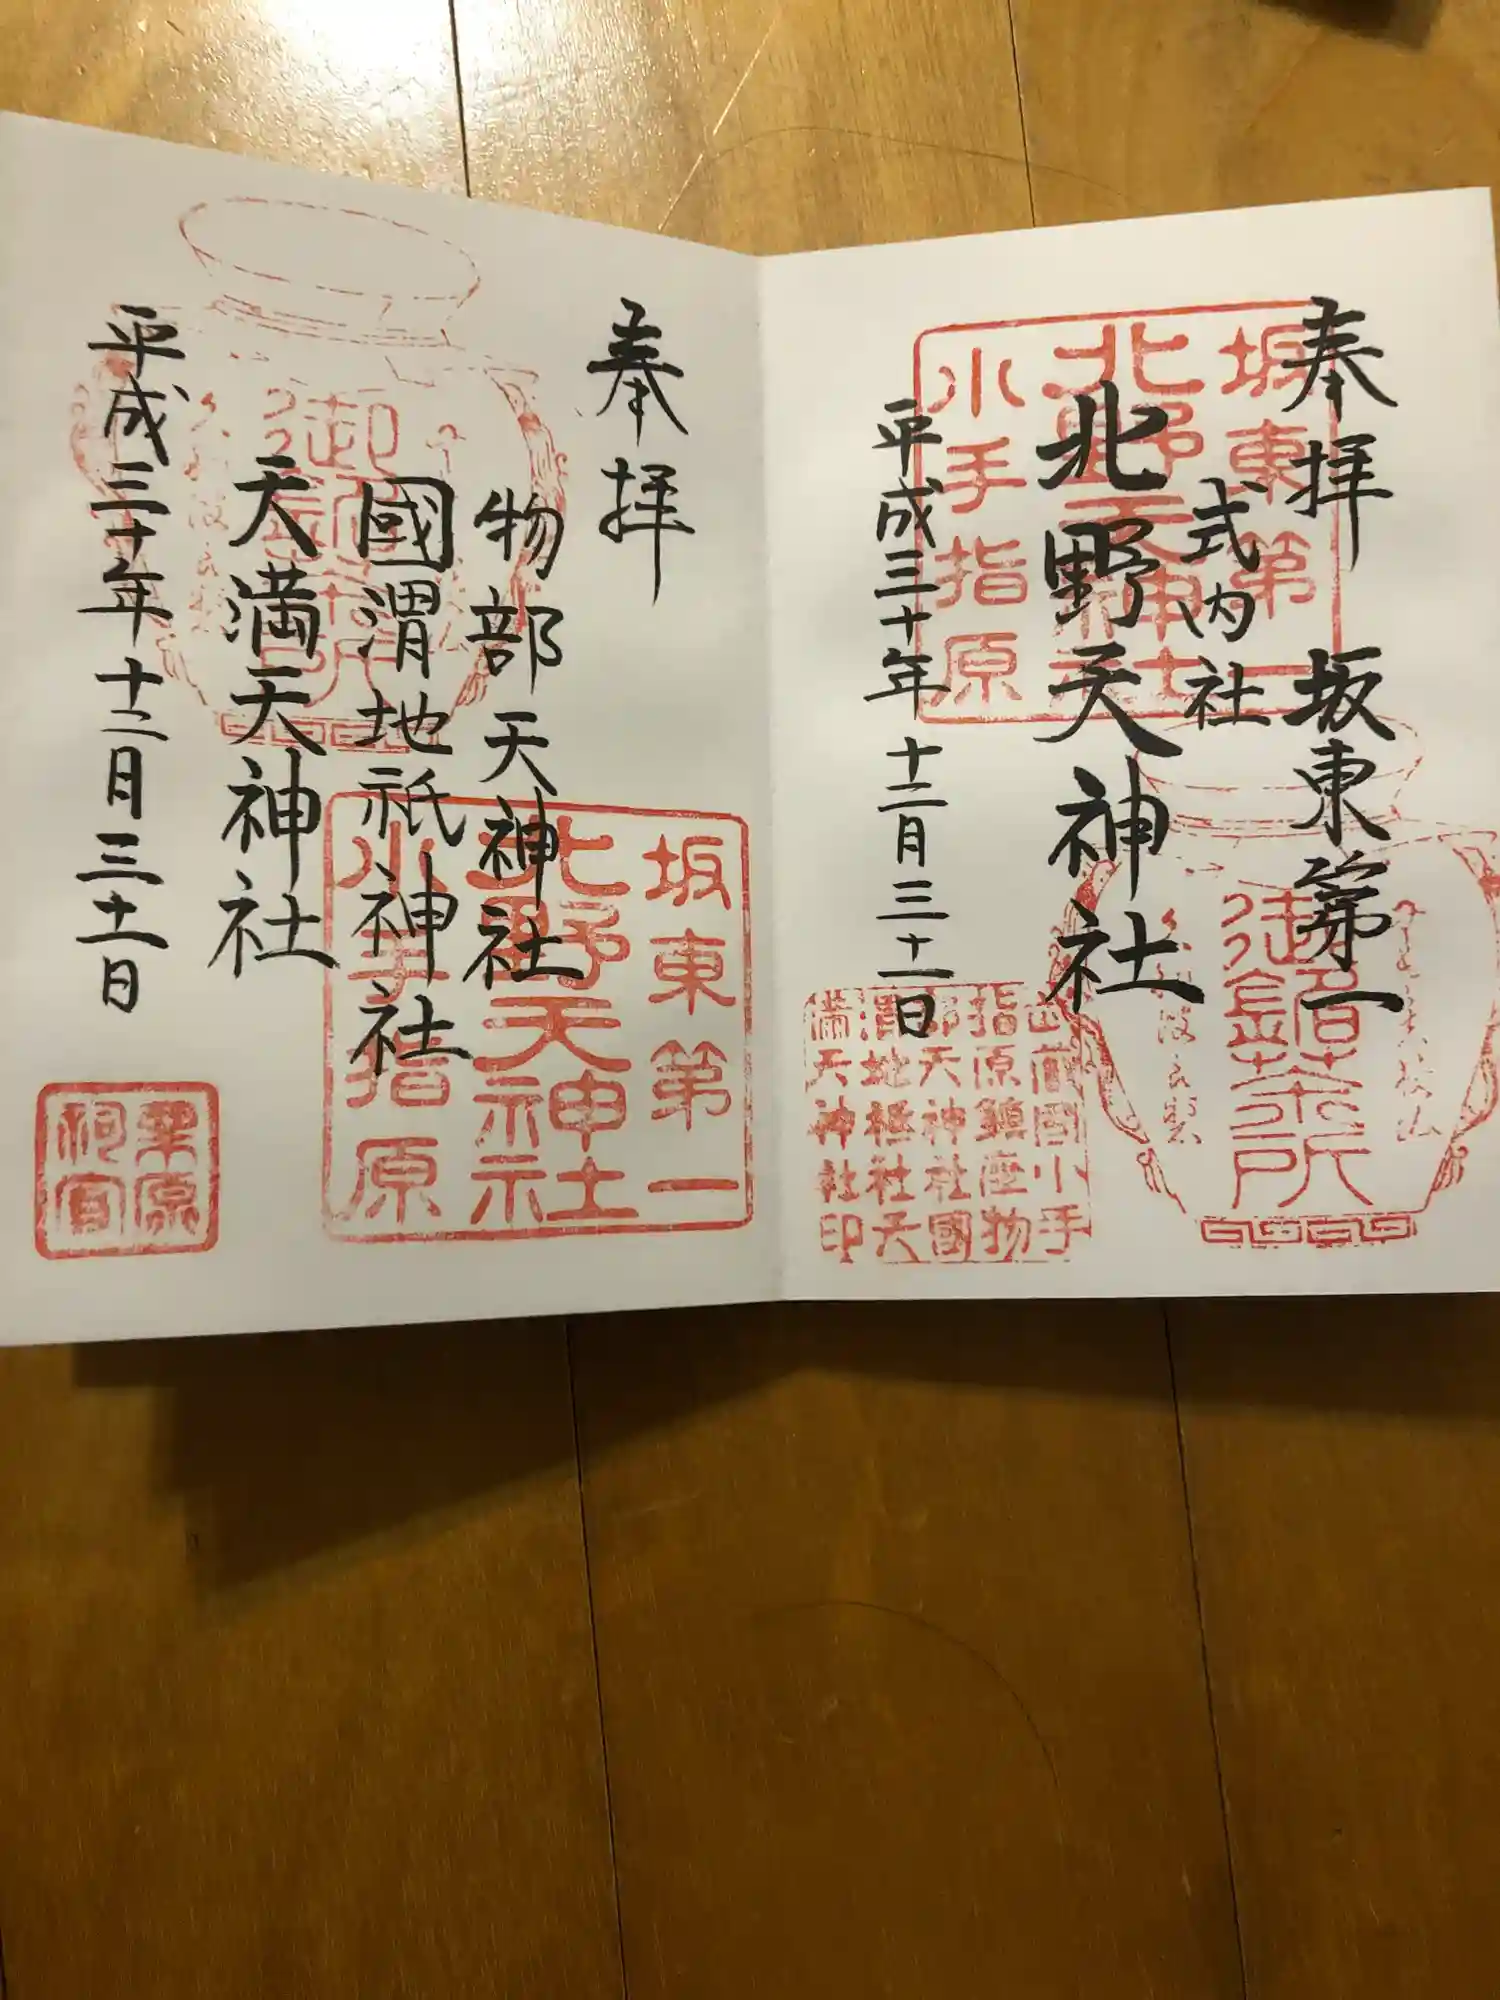 奉拝 坂東第一
式内社
北野天神社
平成三十年十二月三十一日
坂東第一
北野天神社
小手指原
御鎮茶所
武蔵國小手
指原鎮座物
部天神社國
渭地祇社天
満天神社印
奉拝
物部天神社
國渭地祇神社
天満天神社
平成三十年十二月三十一日
坂東第一
北野天神社
小手指原
栗原
祠官